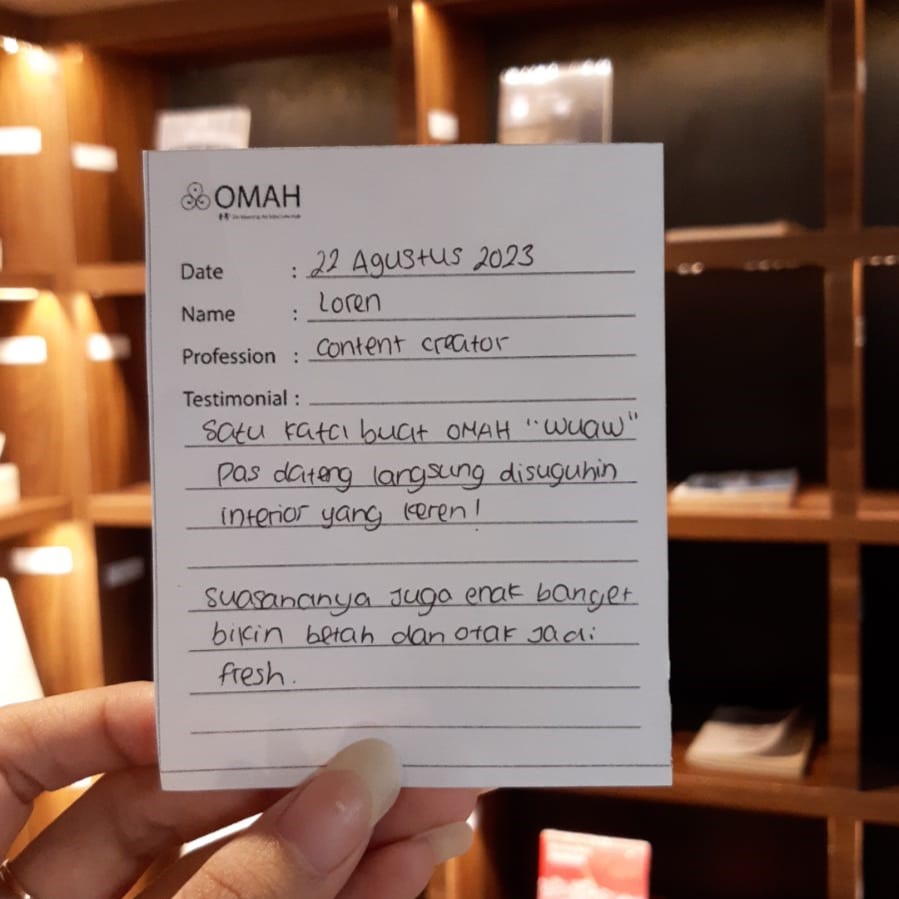 OMAH
Date : 22 Agustus 2023
Name : Loren
Profession : Content creator
Testimonial :
Satu kata buat OMAH "wuaw"
Pas dateng langsung disuguhin
interior yang keren!
Suasananya juga enak banget
bikin betah dan otak jadi
fresh.